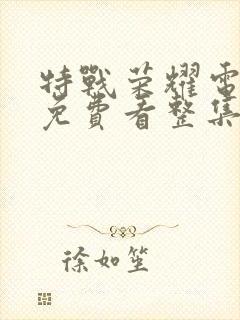 特戰荣耀電
免費看整集
徐如笙